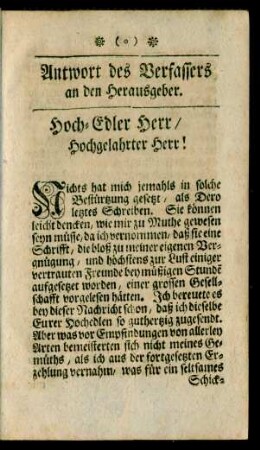 ❋ ( o ) ❋
Antwort des Verfassers
an den Herausgeber.
Hoch-Edler Herr /
Hochgelahrter Herr!
Nichts hat mich jemahls in solche
Bestürtzung gesetzt, als Dero
letztes Schreiben. Sie können
leicht dencken, wie mir zu Muthe gewesen
seyn müsse, da ich vernommen, daß sie eine
Schrifft, die bloß zu meiner eigenen Ver-
gnügung, und höchstens zur Lust einiger
vertrauten Freunde bey müßigen Stunde
aufgesetzet worden, einer grossen Gesell-
schafft vorgelesen hätten. Ich bereuete es
bey dieser Nachricht schon, daß ich dieselbe
Eurer Hochedlen so guthertzig zugesendt.
Aber was vor Empfindungen von allerley
Arten bemeisterten sich nicht meines Ge-
müths, als ich aus der fortgesetzten Er-
zehlung vernahm, was für ein seltsames
Schick-